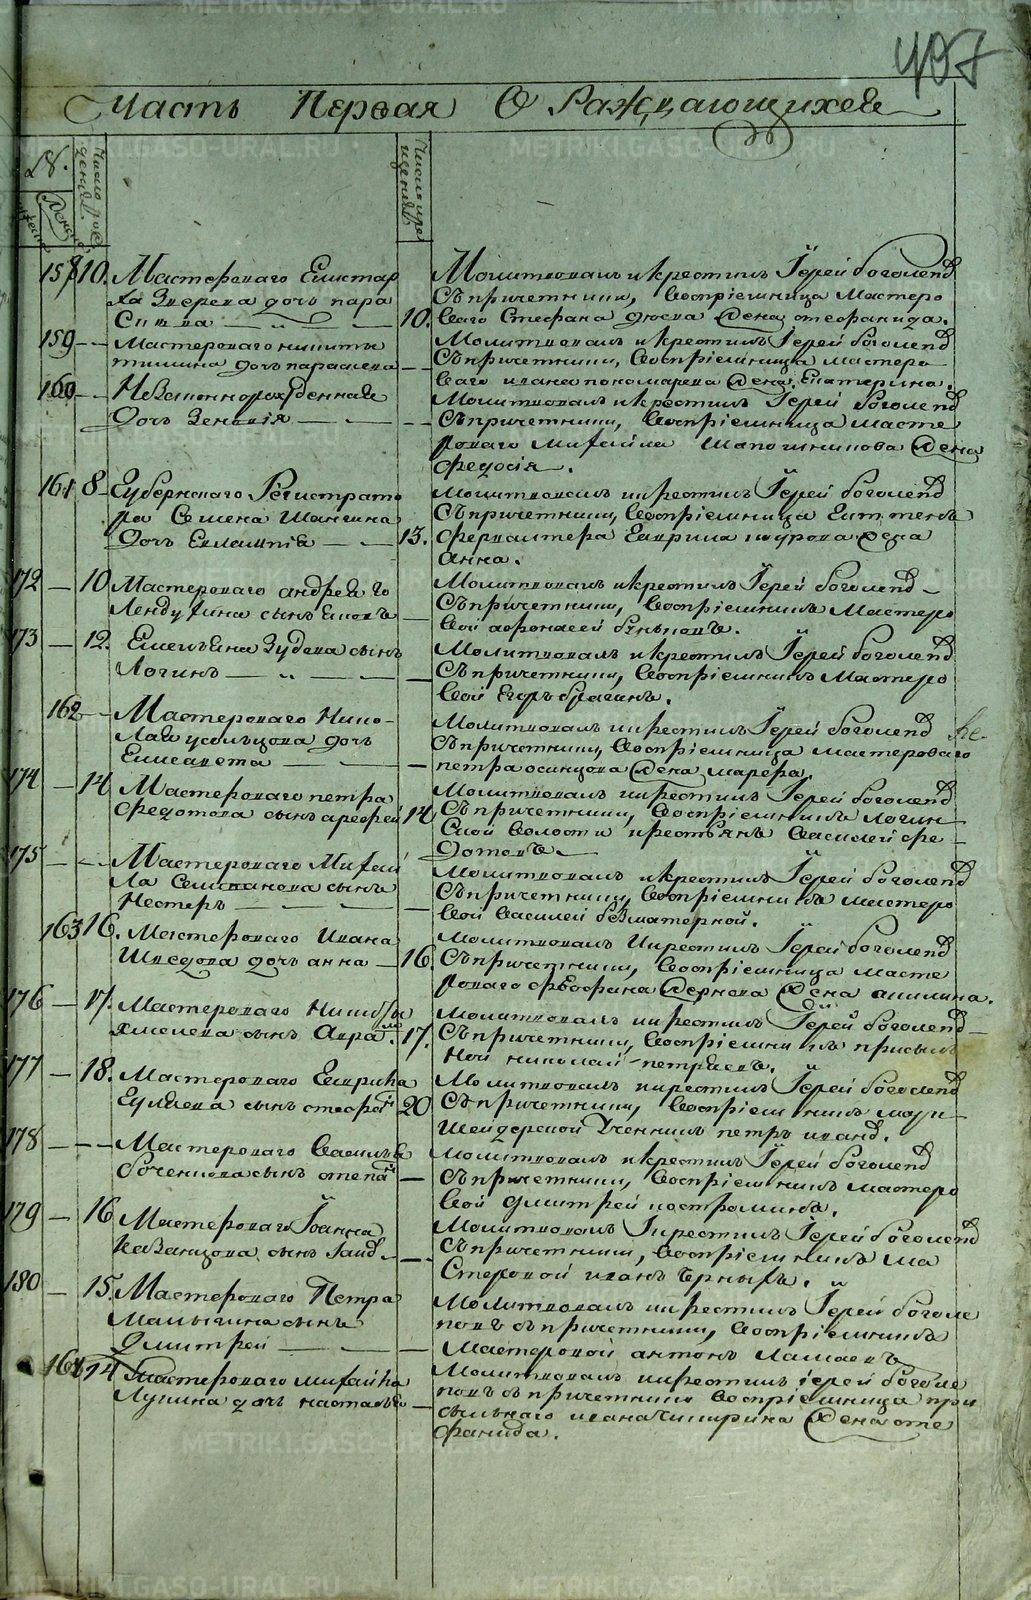 407
Часть Первая О Раждающихся
№.
Число рож
дения.
Число кре
щения
158 10. Мастероваго Елистар
ха Зверева дочь пара
Скѣва 10.
Молитвовалъ и крестилъ Iерей боголепд
Съ причетники, Воспрiемница Мастеро
ваго Стефана жена стефанида.
159 Мастероваго никиты
дочь параскева
Молитвовалъ и крестилъ Iерей боголепд
Съ причетники, Воспрiемница мастеро
ваго ивана пономарева жена Екатерина.
160 Незаконнорожденная
Дочь Зеновiя
Молитвовалъ и крестилъ Iерей боголепд
Съ причетники, Воспрiемница масте
роваго михайла Шапошникова жена
Федосiя.
161 8 Губернскаго Регистрато
ра Семена Шангина
Дочь Евлампiя 13.
Молитвовалъ и крестилъ Iерей боголепд
Съ причетники, Воспрiемница
Гаврила жена
Анна.
172 10 Мастероваго андрея
сынъ
Молитвовалъ и крестилъ Iерей боголепд
Съ причетники, Воспрiемникъ Мастеро
вой афонасей
173 12. Емельяна Зудова сынъ
Логинъ
Молитвовалъ и крестилъ Iерей боголепд
Съ причетники, Воспрiемникъ Мастеро
вой Егоръ брагинъ.
162 Мастероваго Нико
лая усольцова дочь
Елисавета
Молитвовалъ и крестилъ Iерей боголепд
Съ причетники, Воспрiемница мастероваго
петра осинцова жена марфа.
174 14 Мастероваго петра
Федотова сынъ арефей 14
Молитвовалъ и крестилъ Iерей боголепд
Съ причетники, Воспрiемникъ Логин
Ской волости крестьянъ Василей Фе
дотовъ
175 Мастероваго Михай
ла Селиванова сынъ
Несторъ
Молитвовалъ и крестилъ Iерей боголепд
Съ причетники, Воспрiемникъ мастеро
вой Василей безматерной.
163 16. Мастероваго Ивана
Шведова дочь анна 16.
Молитвовалъ и крестилъ Iерей боголепд
Съ причетники, Воспрiемница масте
роваго Феофана жернова жена акилина.
176 17. Мастероваго Никиты
Хмелева сынъ Авра 17.
Молитвовалъ и крестилъ Iерей боголепд
Съ причетники, Воспрiемникъ присыл
ной николай петряевъ.
177 18. Мастероваго Гаврила
Гуляева сынъ стефан 20
Молитвовалъ и крестилъ Iерей боголепд
Съ причетники, Воспрiемникъ марк
шейдерской Ученикъ петръ иванд.
178 Мастероваго Василья
боченкова сынъ степан
Молитвовалъ и крестилъ Iерей боголепд
Съ причетники, Воспрiемникъ мастеро
вой Дмитрей костроминъ.
179 16 Мастероваго Iоанна
Казанцова сынъ
Молитвовалъ и крестилъ Iерей боголепд
Съ причетники, Воспрiемникъ ма
стеровой иванъ Черныхъ.
180 15. Мастероваго Петра
Малыгина сынъ
Дмитрей
Молитвовалъ и крестилъ Iерей боголе
повъ съ причетники, Воспрiемникъ
Мастеровой антонъ ламаевъ
164 14 Мастероваго михайла
Лунина дочь настасья
Молитвовалъ и крестилъ iерей боголе
повъ съ причетники Воспрiемница при
сыльнаго ивана чиширина жена сте
фанида.
METRIKI.GASO-URAL.RU